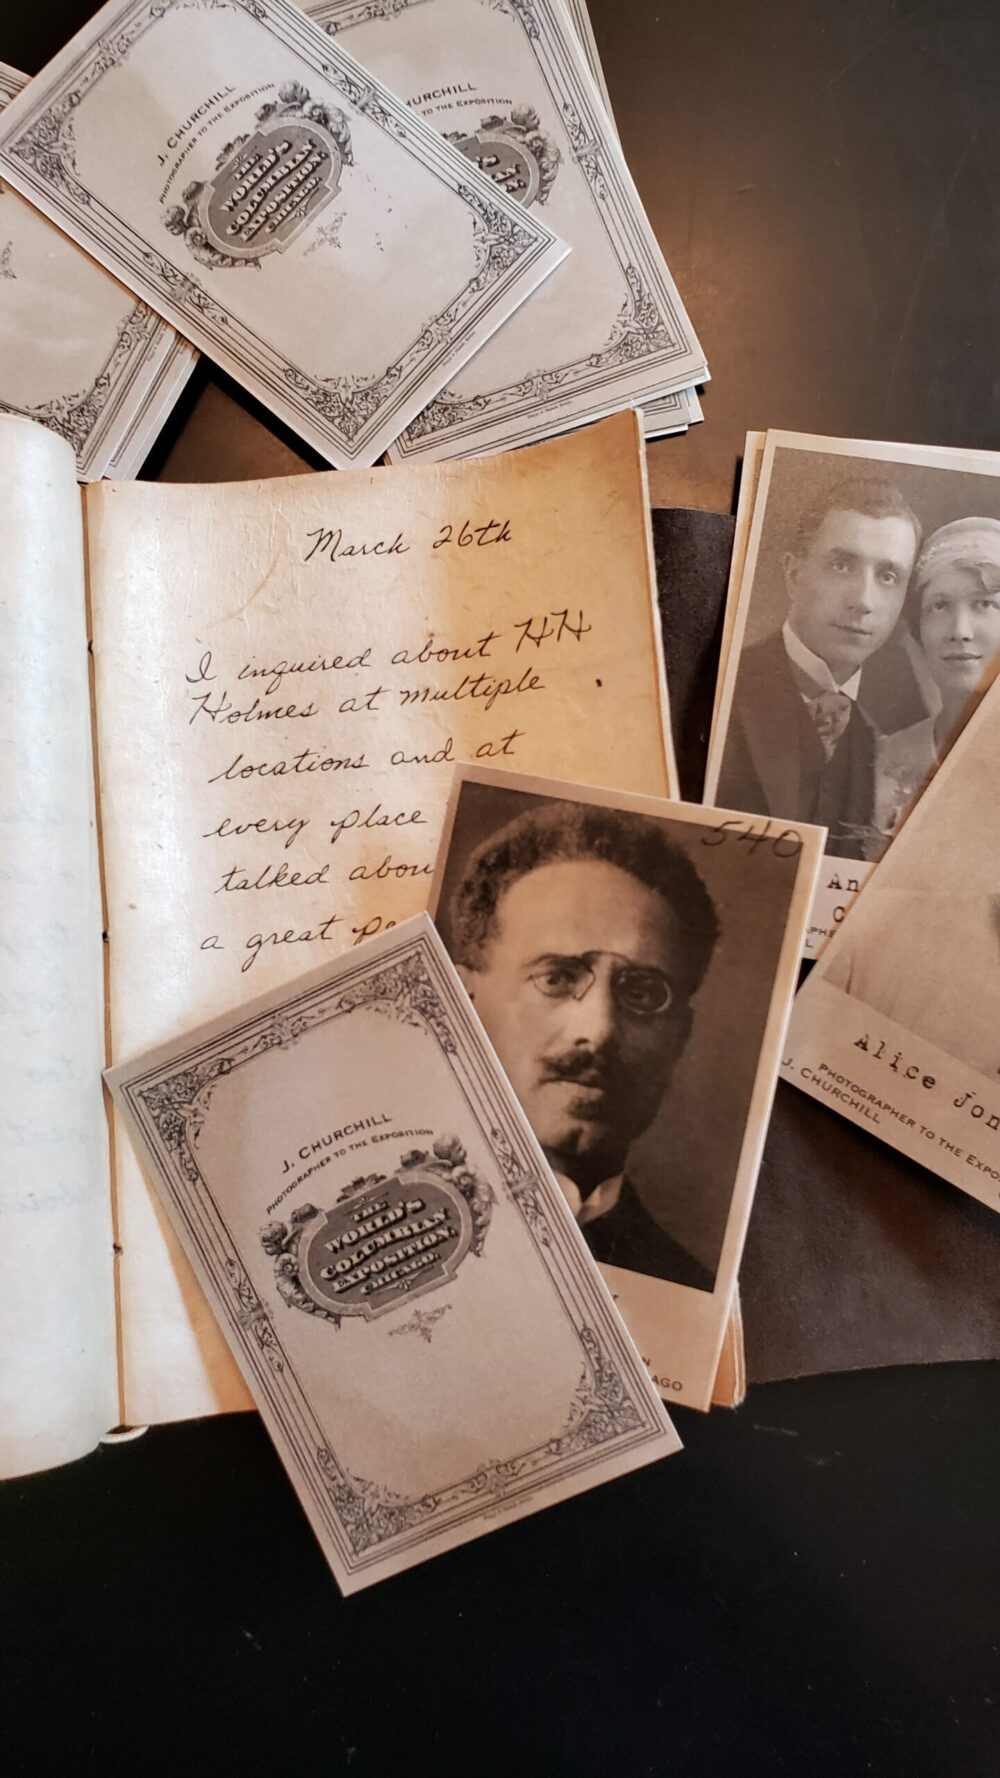 J. CHURCHILL
PHOTOGRAPHER TO THE EXPOSITION
THE
WORLD'S
COLUMBIAN
EXPOSITION.
CHICAGO.
HURCHILL
TO THE EXPOSITION
March 26th
I inquired about HH
Holmes at multiple
locations and at
every place
talked abou
a great pe
540
AGO
An
C
Alice Jon
PHOTOGRAPHER TO THE EXPO
J. CHURCHILL
J. CHURCHILL
PHOTOGRAPHER TO THE EXPOSITION
THE
WORLD'S
COLUMBIAN
EXPOSITION.
CHICAGO.